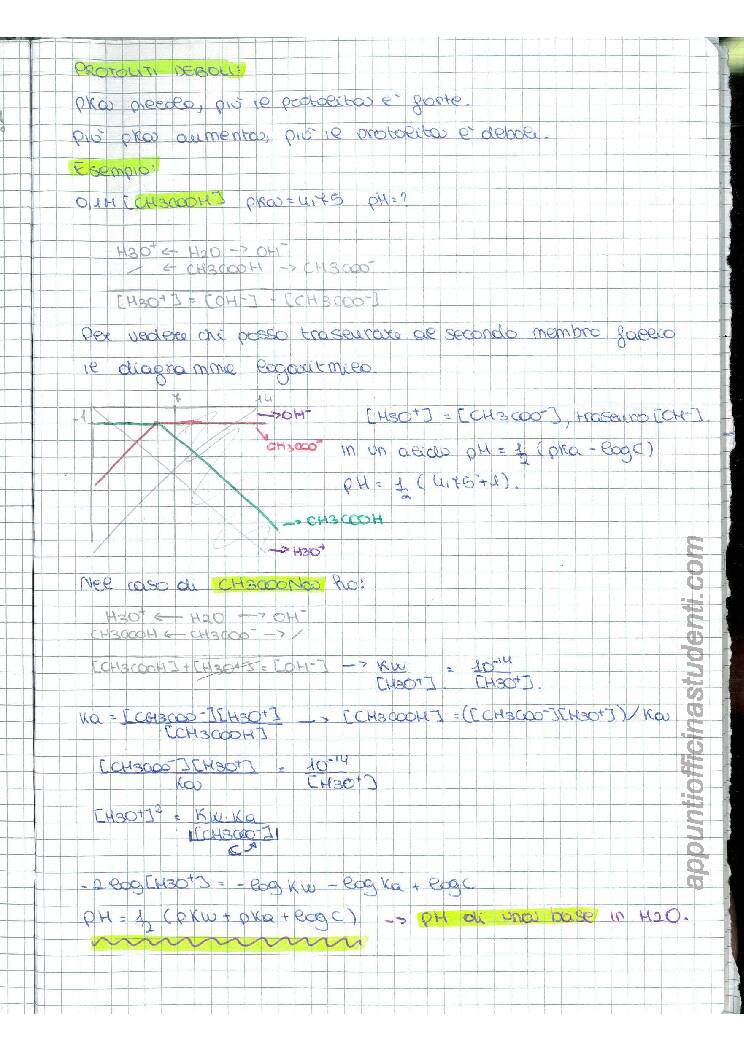 PROTOLITI DEBOLI:
pKa piccola, più il protolita è forte.
Più pKa aumenta, più il protolita è debole.
Esempio:
0,1M [CH3COOH] pKa = 4,75 pH = ?
H3O⁺ ← H2O → OH⁻
/ ← CH3COOH → CH3COO⁻
[H3O⁺] = [OH⁻] + [CH3COO⁻]
Per vedere chi posso trascurare al secondo membro faccio
il diagramma logaritmico.
-1 7 14
→ OH⁻
CH3COO⁻
→ CH3COOH
→ H3O⁺
[H3O⁺] = [CH3COO⁻], trascuro [OH⁻].
in un acido pH = 1/2 (pKa - log C)
pH = 1/2 (4,75 + 1).
Nel caso di CH3COONa ho:
H3O⁺ ← H2O → OH⁻
CH3COOH ← CH3COO⁻ → /
[CH3COOH] + [H3O⁺] = [OH⁻] → Kw / [H3O⁺] = 10⁻¹⁴ / [H3O⁺].
Ka = [CH3COO⁻][H3O⁺] / [CH3COOH] → [CH3COOH] = ([CH3COO⁻][H3O⁺]) / Ka
[CH3COO⁻][H3O⁺] / Ka = 10⁻¹⁴ / [H3O⁺]
[H3O⁺]² = Kw · Ka / [CH3COO⁻]
C
-2 log [H3O⁺] = -log Kw - log Ka + log C
pH = 1/2 (pKw + pKa + log C) → pH di una base in H2O.
appuntiofficinastudenti.com